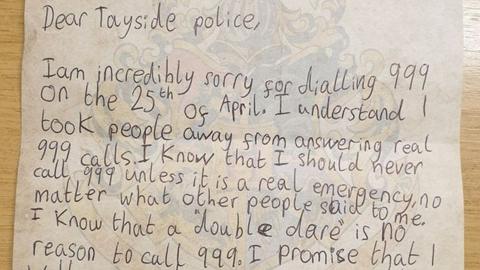 Dear Tayside police,
I am incredibly sorry for dialling 999
on the 25th of April. I understand I
took people away from answering real
999 calls. I know that I should never
call 999 unless it is a real emergency, no
matter what other people said to me.
I know that a "double dare" is no
reason to call 999. I promise that I